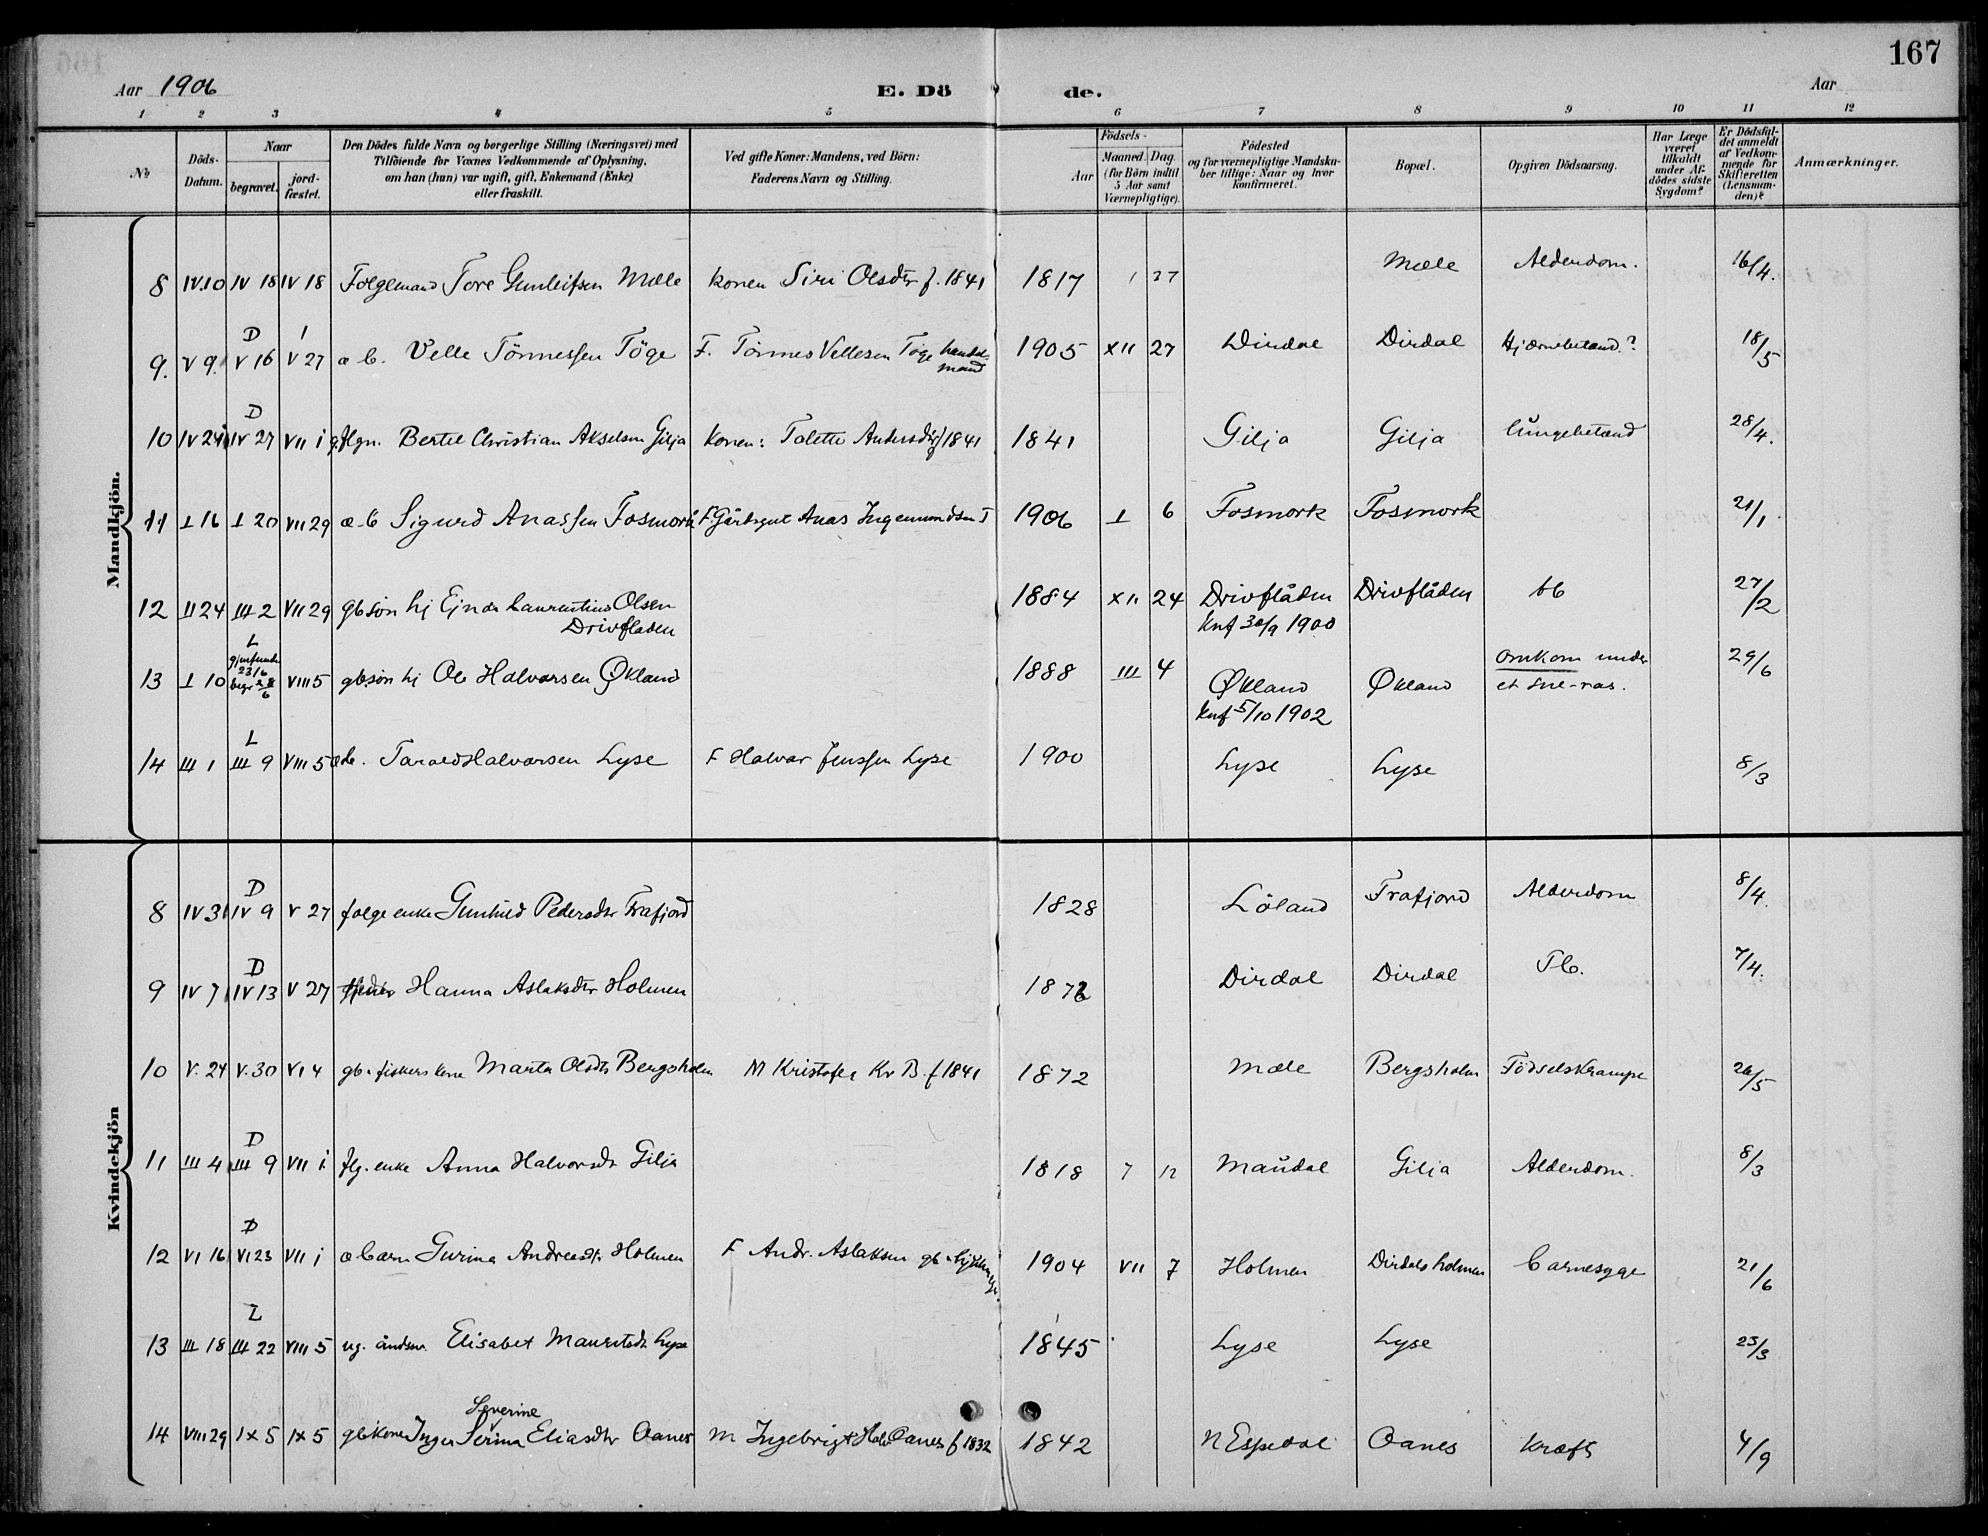 167
Aar 1906 E. Dö de. Aar
1 2 3 4 5 6 7 8 9 10 11 12
No
Döds-Datum.
Naar
begravet.
jord-fæstet.
Den Dödes fulde Navn og borgerlige Stilling (Næringsvei) med
Tilföiende for Voxnes Vedkommende af Oplysning,
om han (hun) var ugift, gift, Enkemand (Enke)
eller fraskilt.
Ved gifte Koner: Mandens, ved Börn:
Faderens Navn og Stilling.
Födsels-
Aar
Maaned. Dag
(for Börn indtil
5 Aar samt
Værnepligtige).
Födested
og for værnepligtige Mandska-
ber tillige: Naar og hvor
konfirmeret.
Bopæl.
Opgiven Dödsaarsag.
Har Læge
været
tilkaldt
under Af-
dödes sidste
Sygdom?
Er Dödsfal-
det anmeldt
af Vedkom-
mende for
Skifteretten
(Lensman-
den)?
Anmærkninger.
Mandkjön.
8 IV 10 IV 18 IV 18 Folgemand Tore Gunleifsen Mæle konen Siri Olsdtr f. 1841 1817 1 27 Mæle Alderdom. 16/4.
9. V 9. D V 16 V 27 æ b. Velle Tönnessen Töge F. Tönnes Vellesen Töge handelsmand 1905 XII 27 Dirdal Dirdal Hjærnebetænd.? 18/5
10 IV 24 D IV 27 VII i Bertil Christian Akselsen Gilja konen: Talette Andersdtr f 1841 1841 Gilja Gilja lungebetænd 28/4.
11 I 16 I 20 VII 29 æ b Sigurd Anassen Fosmork F. Gårbrgut Anas Ingemundsen F 1906 I 6 Fosmork Fosmork 21/1
12 II 24 III 2 VII 29 gb søn hj Ejnar Laurentius Olsen 1884 XII 24 Drivflåden Drivflåden tb 27/2
Drivfladen knf 30/9 1900
13 I 10 L gjenfunden 23/6 begr 28/6 VIII 5 gb søn hj Ole Halvorsen Økland 1888 III 4 Økland Økland omkom under 29/6
knf 5/10 1902 et sne-ras.
14 III 1 L III 9 VIII 5 æ b. Tarald Halvorsen Lyse F Halvor Jenssen Lyse 1900 Lyse Lyse 8/3
Kvindekjön
8 IV 3 D IV 9 V 27 folge enke Gunhild Pedersdtr Frafjord 1828 Löland Frafjord Alderdom 8/4.
9 IV 7 D IV 13 V 27 Hanna Aslaksdtr Holmen 1872 Dirdal Dirdal Tb. 7/4.
10 V. 24 V. 30 VI 4 gb. fiskers kone Marta Olsdtr Bergsholm M Kristofer Kr B. f 1841 1872 Mæle Bergsholm Födselskrampe 26/5
11 III 4 D III 9 VII i flg. enke Anna Halvorsdtr Gilja 1818 7 12 Maudal Gilja Alderdom. 8/3
12 VI 16 D VI 23 VII i æ barn Gurina Andreasdtr Holmen F Andr. Aslaksen gb 1904 VII 7 Holmen Dirdalsholmen barnesyge 21/6
13 III 18 L III 22 VIII 5 ug. åndsv. Elisabet Mauritsdtr Lyse 1845 Lyse Lyse 23/3
Severine
14 VIII 29 IX 5 IX 5 gb kone Inger Serina Eliasdtr Oanes M Ingebrigt Halv Oanes f 1832 1842 N Espedal Oanes kræft 4/9